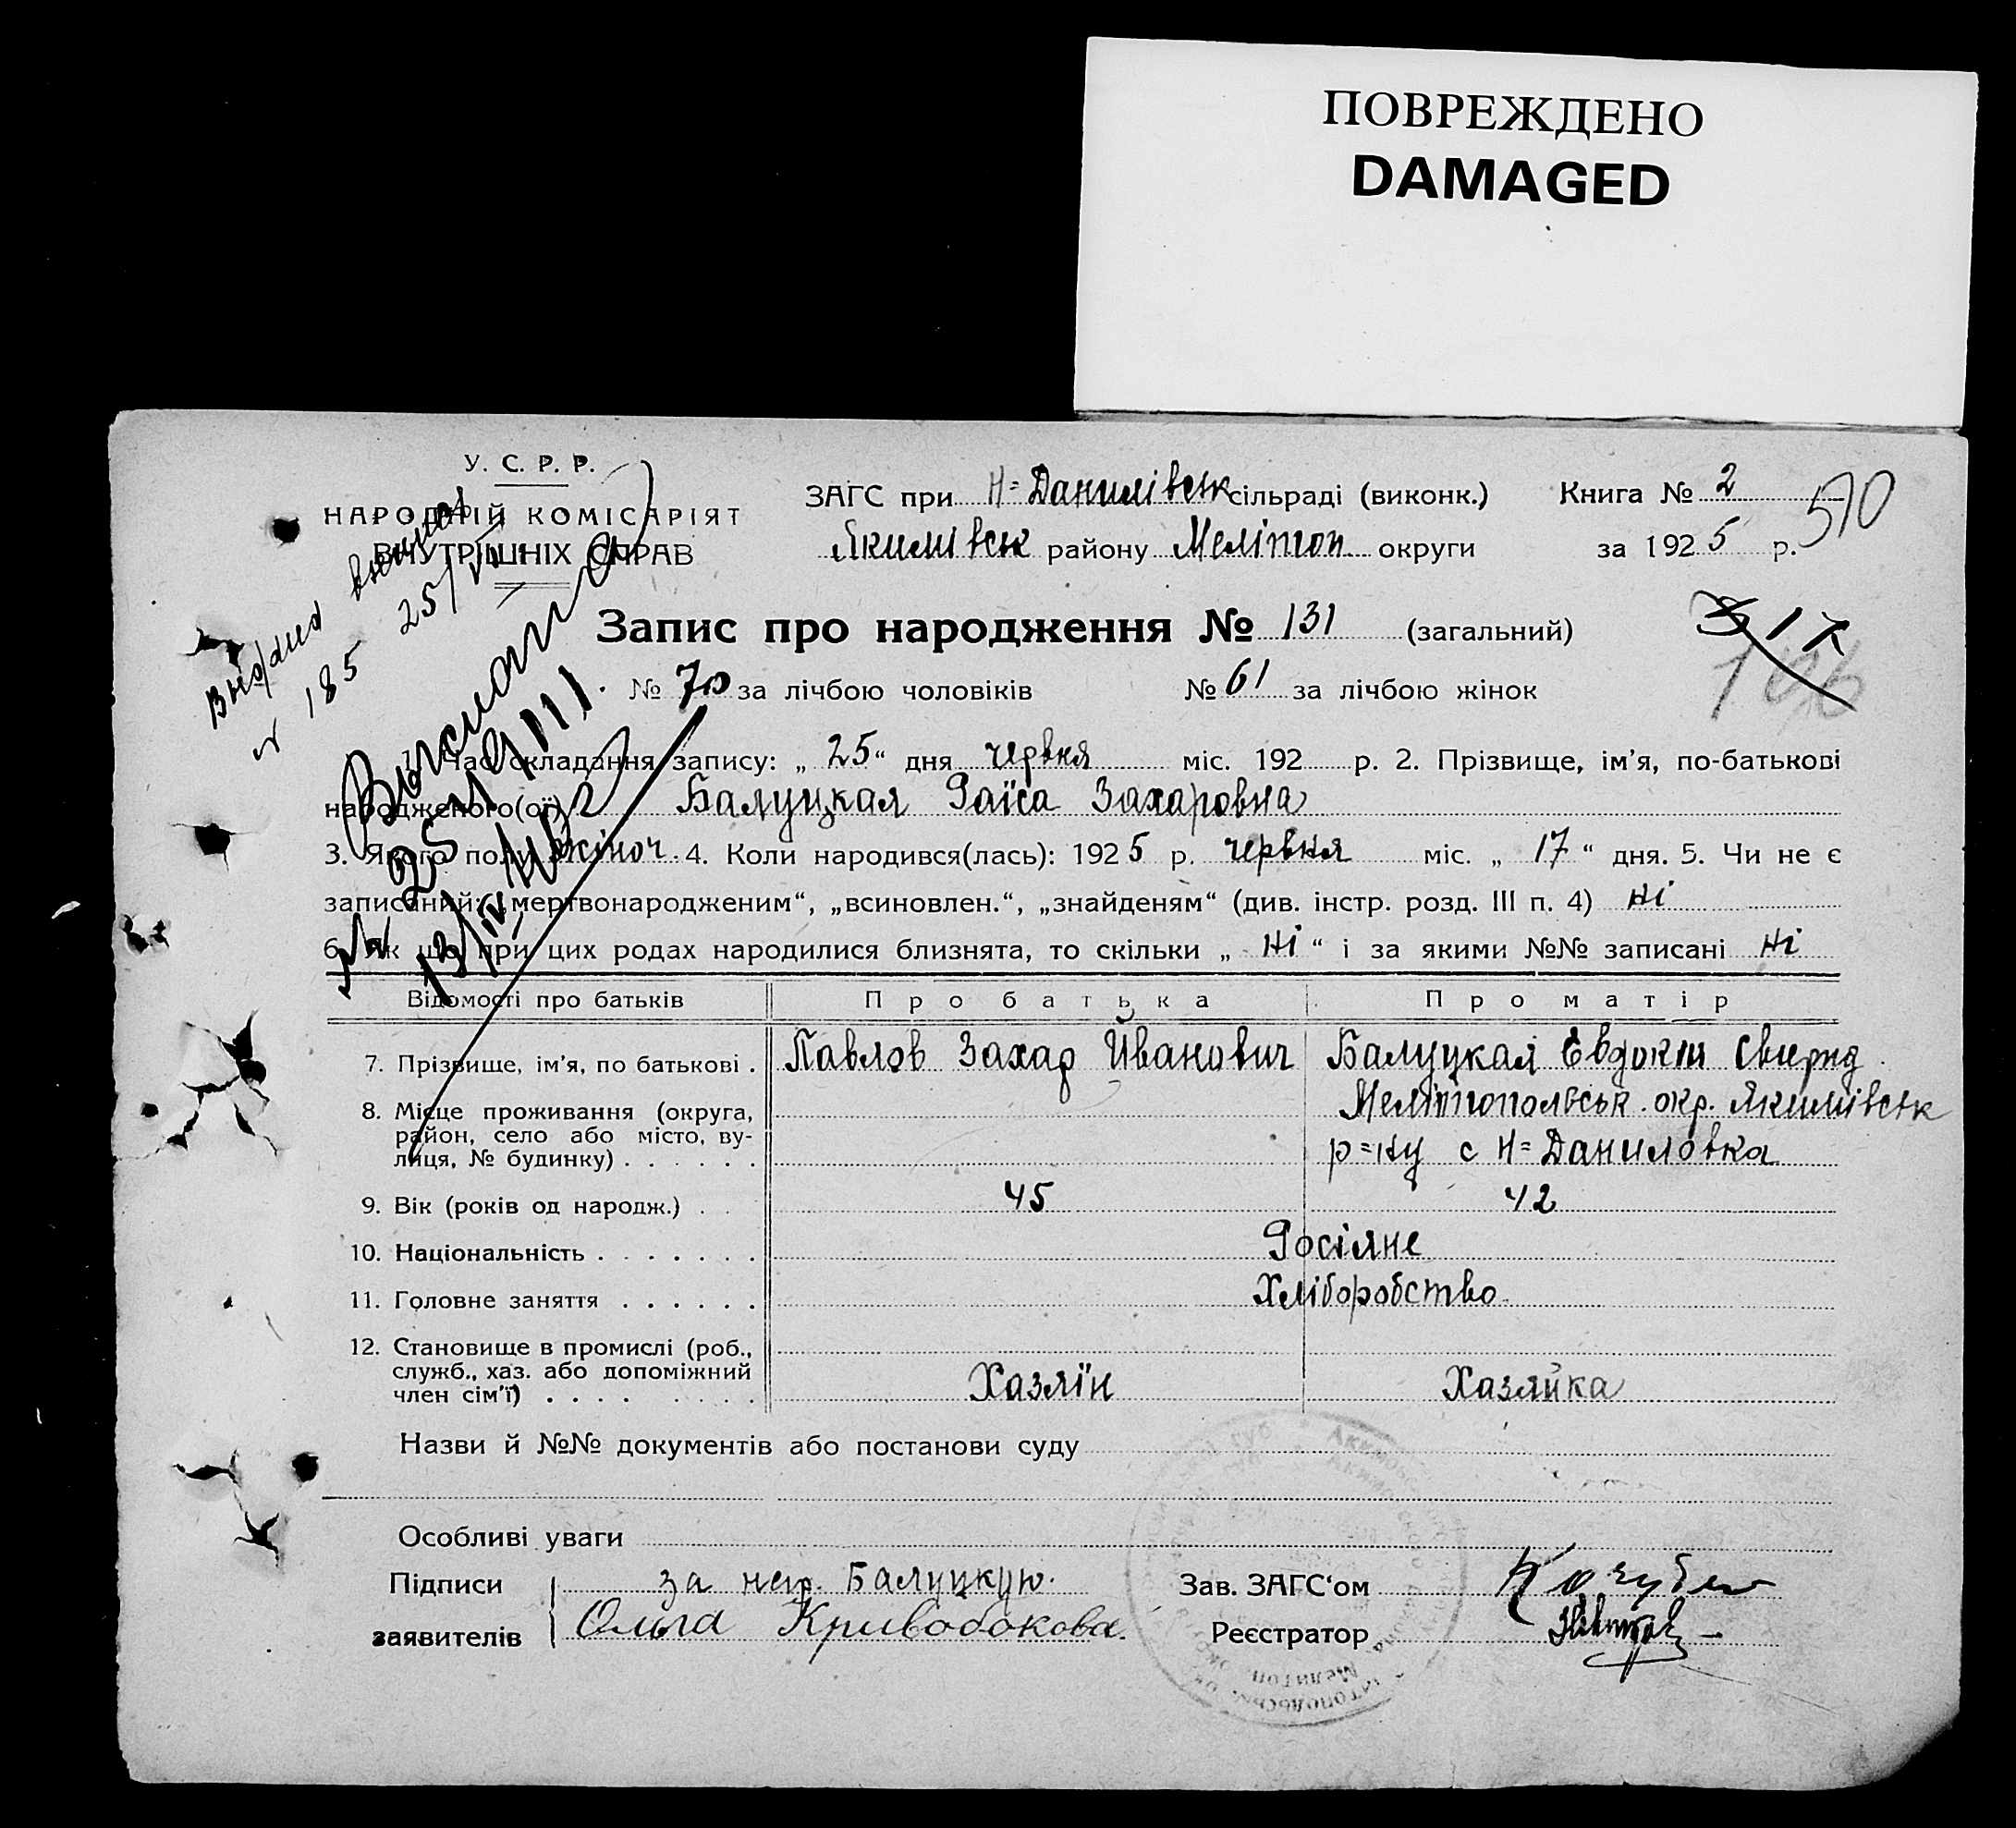 ПОВРЕЖДЕНО
DAMAGED
У. С. Р. Р.
НАРОДНІЙ КОМІСАРІЯТ
ВНУТРІШНІХ СПРАВ
ЗАГС при Н=Данилівськ сільраді (виконк.) Книга № 2
Якимівськ району Меліпоп. округи за 1925 р.
570
Запис про народження № 131 (загальний)
517
106
№ 70 за лічбою чоловіків № 61 за лічбою жінок
№ 185 25/
Час складання запису: „ 25 “ дня червня міс. 192 р. 2. Прізвище, ім'я, по-батькові
народженого(ої) Балуцкая Раїса Захаровна
3. Якого полу жіноч. 4. Коли народився(лась): 1925 р. червня міс. „ 17 “ дня. 5. Чи не є
записаний: „мертвонародженим“, „всиновлен.“, „знайденям“ (див. інстр. розд. III п. 4) ні
6. Як що при цих родах народилися близнята, то скільки „ ні “ і за якими №№ записані ні
Відомості про батьків Про батька Про матір
7. Прізвище, ім'я, по батькові . Павлов Захар Иванович Балуцкая Євдокія Свирид.
8. Місце проживання (округа, Мелітопольськ. окр. Якимівськ
район, село або місто, ву-
лиця, № будинку) . . . . . . р=ну с Н=Даниловка
9. Вік (років од народж.) . . 45 42
10. Національність . . . . . . . Росіяне
11. Головне заняття . . . . . . Хліборобство
12. Становище в промислі (роб.,
служб., хаз. або допоміжний
член сім'ї) . . . . . . . . Хазяїн Хазяйка
Назви й №№ документів або постанови суду
Особливі уваги
Підписи за негр. Балуцкую.
заявителів Ольга Кривобокова.
Зав. ЗАГС'ом
Реєстратор